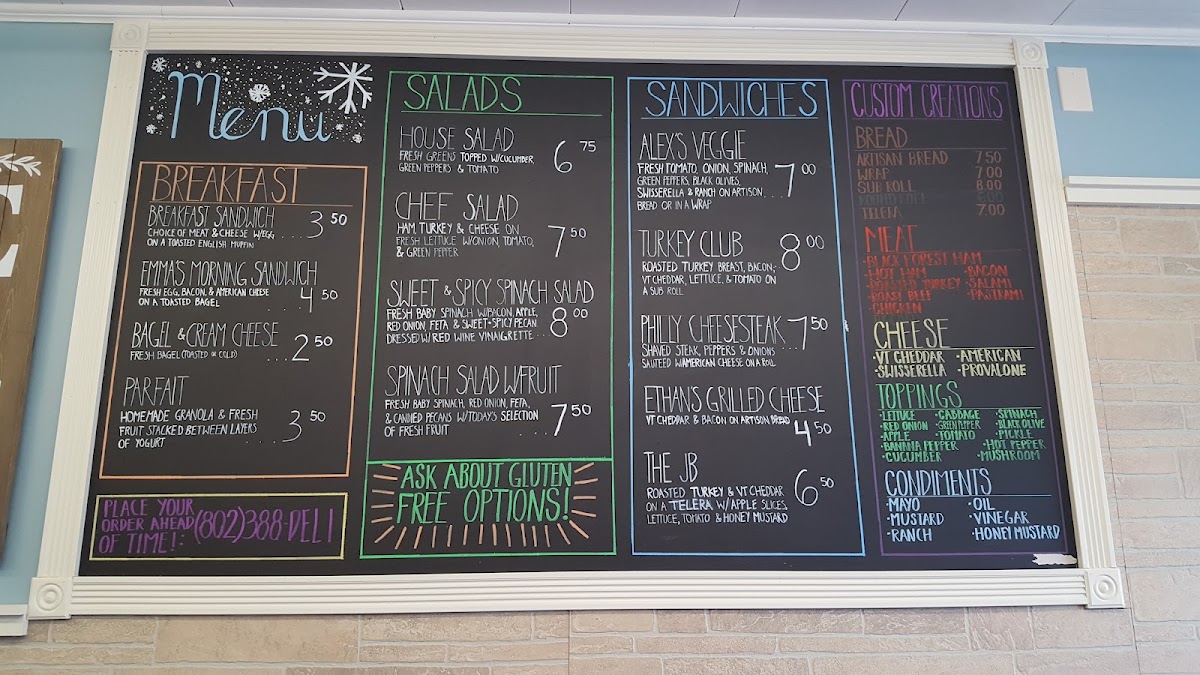 Menu
BREAKFAST
BREAKFAST SANDWICH
CHOICE OF MEAT & CHEESE W/EGG .... 3 50
ON A TOASTED ENGLISH MUFFIN
EMMA'S MORNING SANDWICH
FRESH EGG, BACON, & AMERICAN CHEESE
ON A TOASTED BAGEL ....... 4 50
BAGEL & CREAM CHEESE
FRESH BAGEL (TOASTED OR COLD) .... 2 50
PARFAIT
HOMEMADE GRANOLA & FRESH
FRUIT STACKED BETWEEN LAYERS
OF YOGURT .... 3 50
PLACE YOUR
ORDER AHEAD
OF TIME!: (802)388-DELI
SALADS
HOUSE SALAD
FRESH GREENS TOPPED W/CUCUMBER,
GREEN PEPPERS & TOMATO ... 6 75
CHEF SALAD
HAM, TURKEY & CHEESE ON
FRESH LETTUCE W/ONION, TOMATO,
& GREEN PEPPER .... 7 50
SWEET & SPICY SPINACH SALAD
FRESH BABY SPINACH W/BACON, APPLE,
RED ONION FETA & SWEET+SPICY PECAN
DRESSED W/RED WINE VINAIGRETTE... 8 00
SPINACH SALAD W/FRUIT
FRESH BABY SPINACH, RED ONION, FETA,
& CANDIED PECANS W/TODAY'S SELECTION
OF FRESH FRUIT .... 7 50
ASK ABOUT GLUTEN
FREE OPTIONS!
SANDWICHES
ALEX'S VEGGIE
FRESH TOMATO, ONION, SPINACH,
GREEN PEPPERS, BLACK OLIVES,
SWISSERELLA & RANCH ON ARTISAN .... 7 00
BREAD OR IN A WRAP
TURKEY CLUB
ROASTED TURKEY BREAST, BACON,
VT CHEDDAR, LETTUCE, & TOMATO ON
A SUB ROLL .... 8 00
PHILLY CHEESESTEAK
SHAVED STEAK, PEPPERS & ONIONS
SAUTEED W/AMERICAN CHEESE ON A ROLL ... 7 50
ETHAN'S GRILLED CHEESE
VT CHEDDAR & BACON ON ARTISAN BREAD
4 50
THE JB
ROASTED TURKEY & VT CHEDDAR
ON A TELERA W/APPLE SLICES,
LETTUCE, TOMATO & HONEY MUSTARD ... 6 50
CUSTOM CREATIONS
BREAD
ARTISAN BREAD 7 50
WRAP 7 00
SUB ROLL 8.00
TELERA 7.00
MEAT
·BLACK FOREST HAM
·HOT HAM ·BACON
·ROASTED TURKEY ·SALAMI
·ROAST BEEF ·PASTRAMI
·CHICKEN
CHEESE
·VT CHEDDAR ·AMERICAN
·SWISSERELLA ·PROVALONE
TOPPINGS
·LETTUCE ·CABBAGE ·SPINACH
·RED ONION ·GREEN PEPPER ·BLACK OLIVE
·APPLE ·TOMATO ·PICKLE
·BANANA PEPPER ·HOT PEPPER
·CUCUMBER ·MUSHROOM
CONDIMENTS
·MAYO ·OIL
·MUSTARD ·VINEGAR
·RANCH ·HONEY MUSTARD